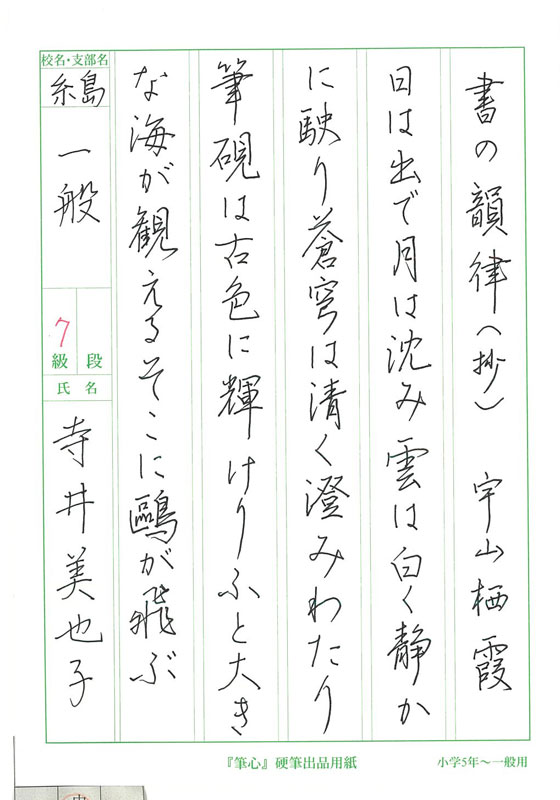 書の韻律（抄）　宇山栖霞
日は出で月は沈み雲は白く静か
に駛り蒼穹は清く澄みわたり
筆硯は古色に輝けりふと大き
な海が観えるそこに鷗が飛ぶ
校名・支部名
糸島
一般
7
級
段
氏名
寺井美也子
『筆心』硬筆出品用紙
小学5年〜一般用